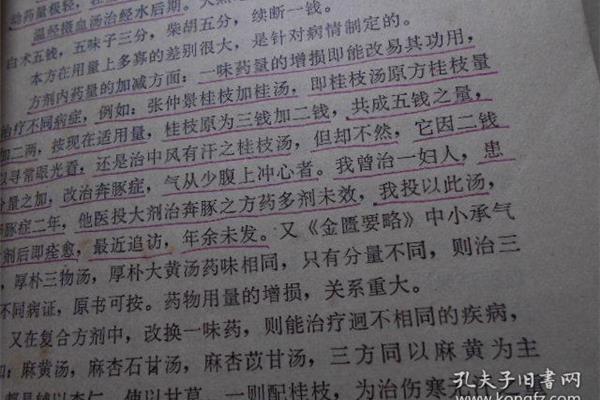 动药量极轻，
温经摄血汤治经水后期。
白术五钱，五味子三分，柴胡五分，续断一钱。
本方在用量上多寡的差别很大，是针对病情制定的。
方剂内药量的加减方面：一味药量的增损即能改易其功用，
治疗不同病症，例如：张仲景桂枝加桂汤，即桂枝汤原方桂枝量
加二两，按现在适用量，桂枝原为三钱加二钱，共成五钱之量，
以寻常眼光看，还是治中风有汗之桂枝汤，但却不然，它因二钱
分量之加，改治奔豚症，气从少腹上冲心者。我曾治一妇人，患
豚症二年，他医投大剂治奔豚之方药多剂未效，我投以此汤，
剂后即痊愈，最近追访，年余未发。又《金匮要略》中小承气
，厚朴三物汤，厚朴大黄汤药味相同，只有分量不同，则治三
不同病证，原书可按。药物用量的增损，关系重大。
又在复合方剂中，改换一味药，则能治疗迥不相同的疾病，
如：麻黄汤，麻杏石甘汤，麻杏苡甘汤，三方同以麻黄为主
以杏仁，使以甘草，一则配桂枝，为治伤寒
孔夫子旧书网
www.kongfz.com